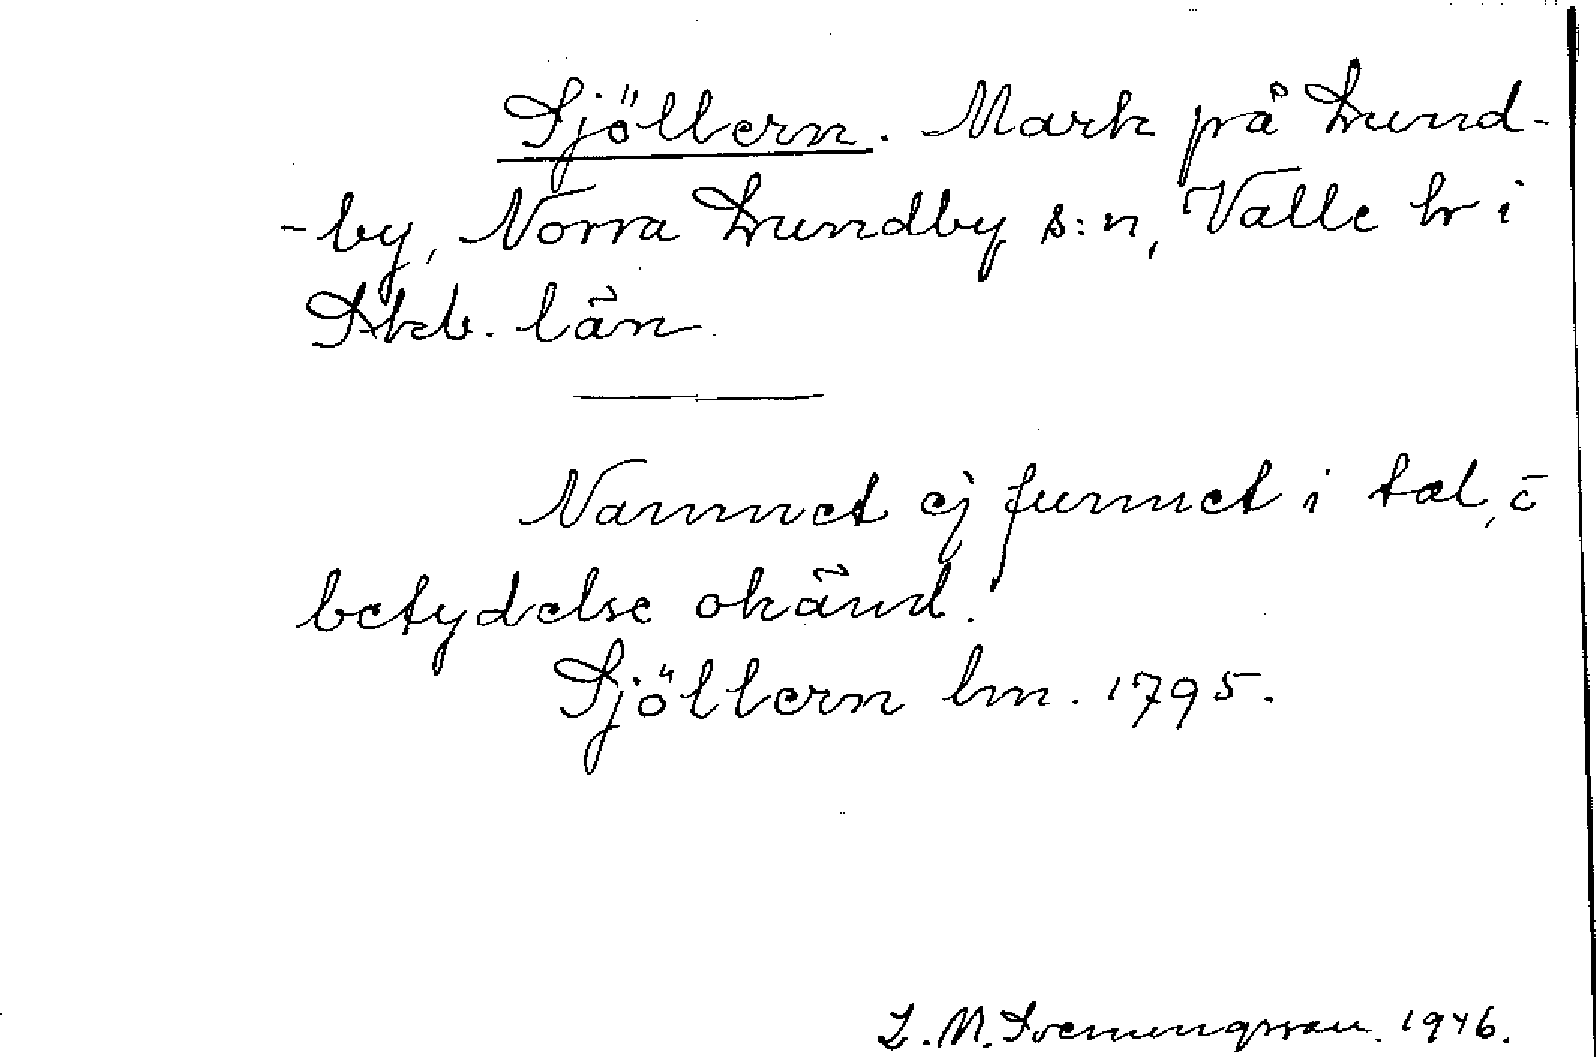 Sjöllern. Mark på Lund-
-by, Norra Lundby s:n, Valle hr i
Skb. län.
Namnet ej funnet i tal, o
betydelse okänd.
Sjöllern lm. 1795.
L. N. Svenungsson. 1946.